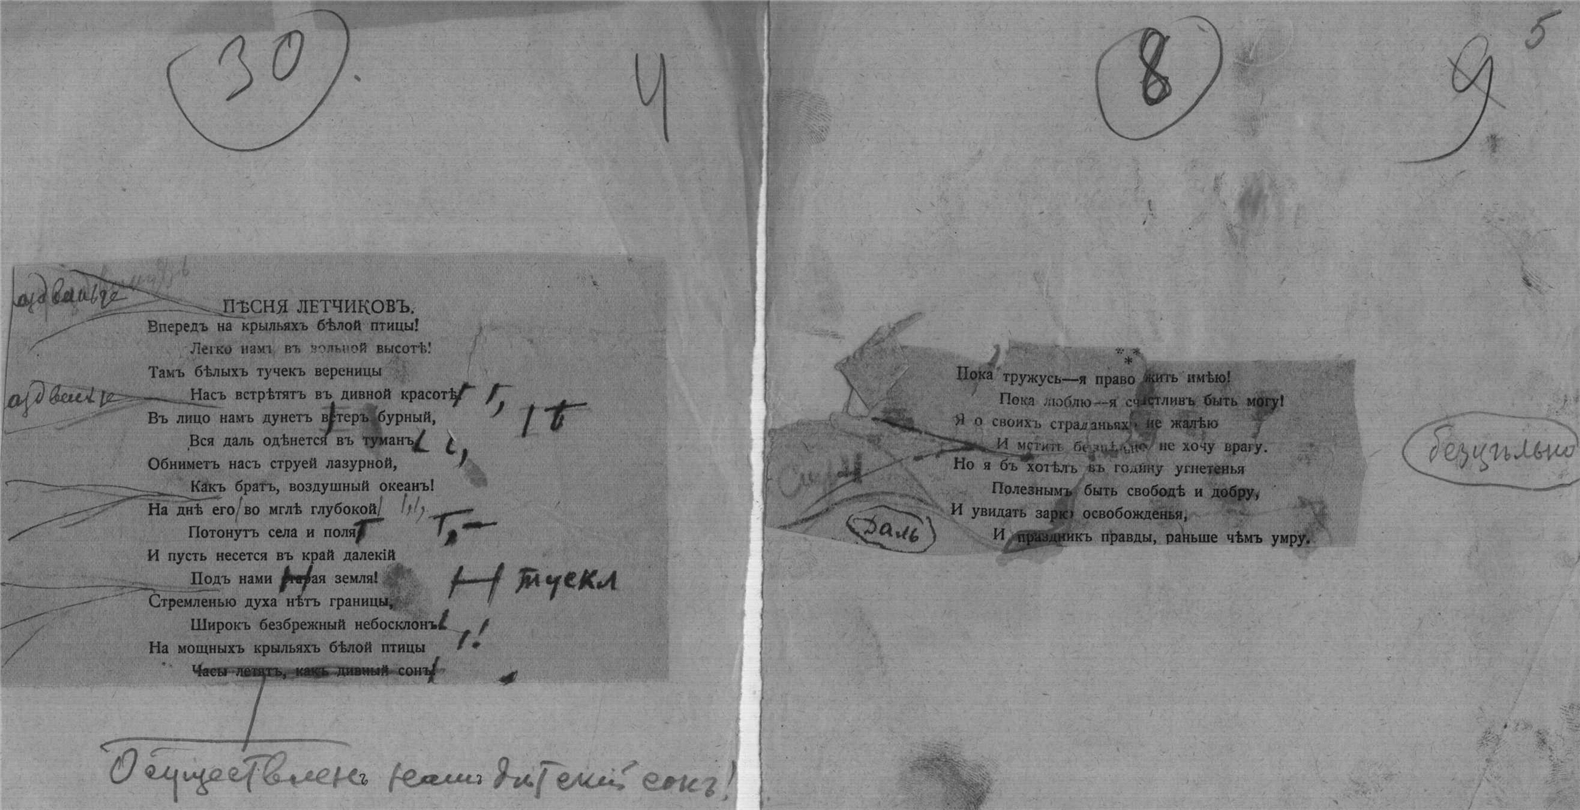 30
4
ПѢСНЯ ЛЕТЧИКОВЪ.
Впередъ на крыльяхъ бѣлой птицы!
Легко намъ въ вольной высотѣ!
Тамъ бѣлыхъ тучекъ вереницы
Насъ встрѣтятъ въ дивной красотѣ
Въ лицо намъ дунетъ вѣтеръ бурный,
Вся даль одѣнется въ туманъ
Обниметъ насъ струей лазурной,
Какъ братъ, воздушный океанъ!
На днѣ его во мглѣ глубокой
Потонутъ села и поля
И пусть несется въ край далекій
Подъ нами старая земля!
тускл
Стремленью духа нѣтъ границы,
Широкъ безбрежный небосклонъ
На мощныхъ крыльяхъ бѣлой птицы
Часы летятъ, какъ дивный сонъ!
Осуществленъ нашъ дѣтскій сонъ!
8
9
5
* * *
Пока тружусь—я право жить имѣю!
Пока люблю—я счастливъ быть могу!
Я о своихъ страданьяхъ не жалѣю
И мстить безцѣльно не хочу врагу.
безцѣльно
Но я бъ хотѣлъ въ годину угнетенья
Полезнымъ быть свободѣ и добру,
И увидать зарю освобожденья,
И праздникъ правды, раньше чѣмъ умру.
Даль